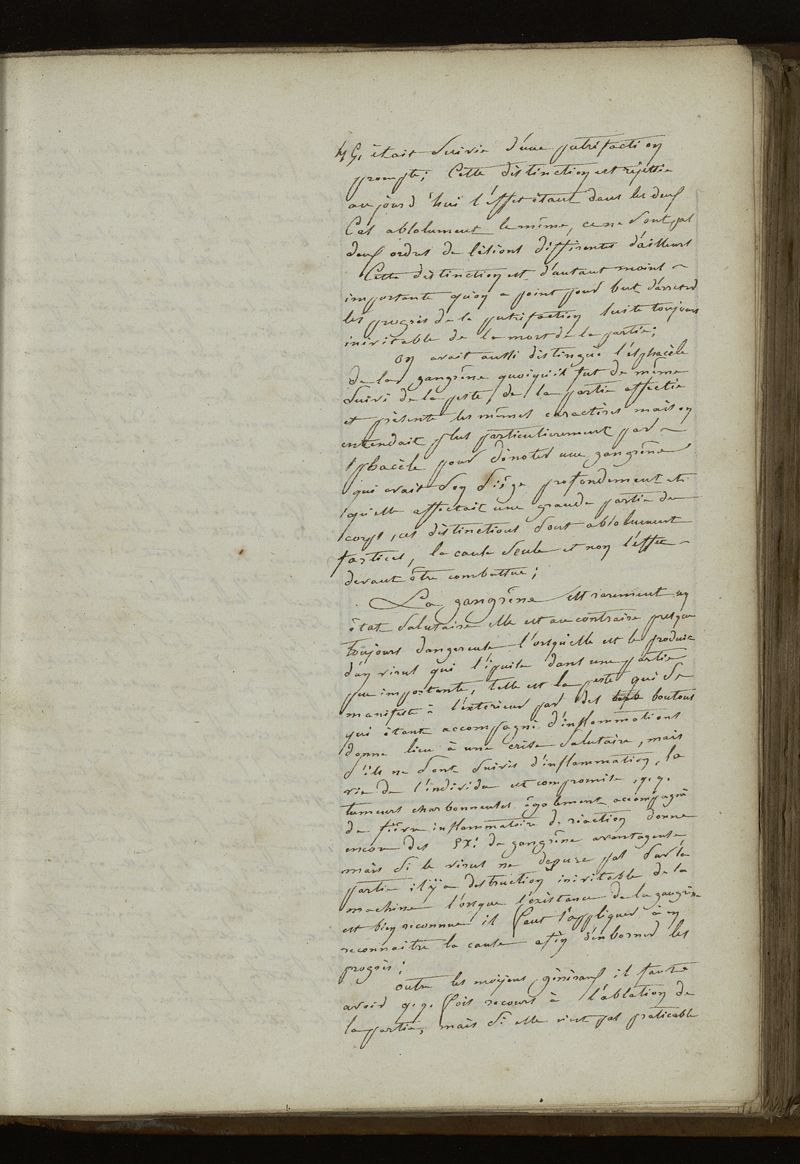 était suivie d'une putréfaction
prompte; Cette distinction est rejettée
aujourd'hui l'effet étant dans les deux
Cas absolument le même, ce ne sont pas
deux ordres de lésions différentes d'ailleurs
Cette distinction est d'autant moins
importante qu'on a point pour but d'arreter
les progrès de la putréfaction suite toujours
inévitable de la mort de la partie;
on avait aussi distingué l'esphacèle
de la gangrène quoiqu'il fut de même
suivi de la perte de la partie affectée
et présente les mêmes caractères mais on
entendait plus particulierement par
sphacèle pour dénoter une gangrène
qui avait son siège profondement et
qu'elle affectait une grande partie du
corps, ces distinctions sont absolument
factices, la cause seule et non l'effet
devant être combattue;
La gangrène est rarement un
état salutaire elle est au contraire presque
toujours dangereuse l'orsqu'elle est le produit
d'un virus qui s'épuise dans une partie
peu importante, telle est la peste qui se
manifeste à l'extérieur par des boutons
qui étant accompagné d'inflammations
donne lieu à une crise salutaire, mais
s'ils ne sont suivis d'inflammation, la
vie de l'individu est compromise, q.q.
tumeurs charbonneuses également accompagné
de fièvre inflammatoire de réaction donne
encore des Ex: de gangrène avantageuse
mais si le virus ne depure pas sur la
partie il y a destruction inévitable de la
machine l'orsque l'existance de la gangrène
est bien reconnue il faut s'appliquer à en
reconnaitre la cause afin d'en borner les
progrès;
outre les moyens généraux il faut
avoir q.q. fois recours à l'ablation de
la partie, mais si elle n'est pas praticable